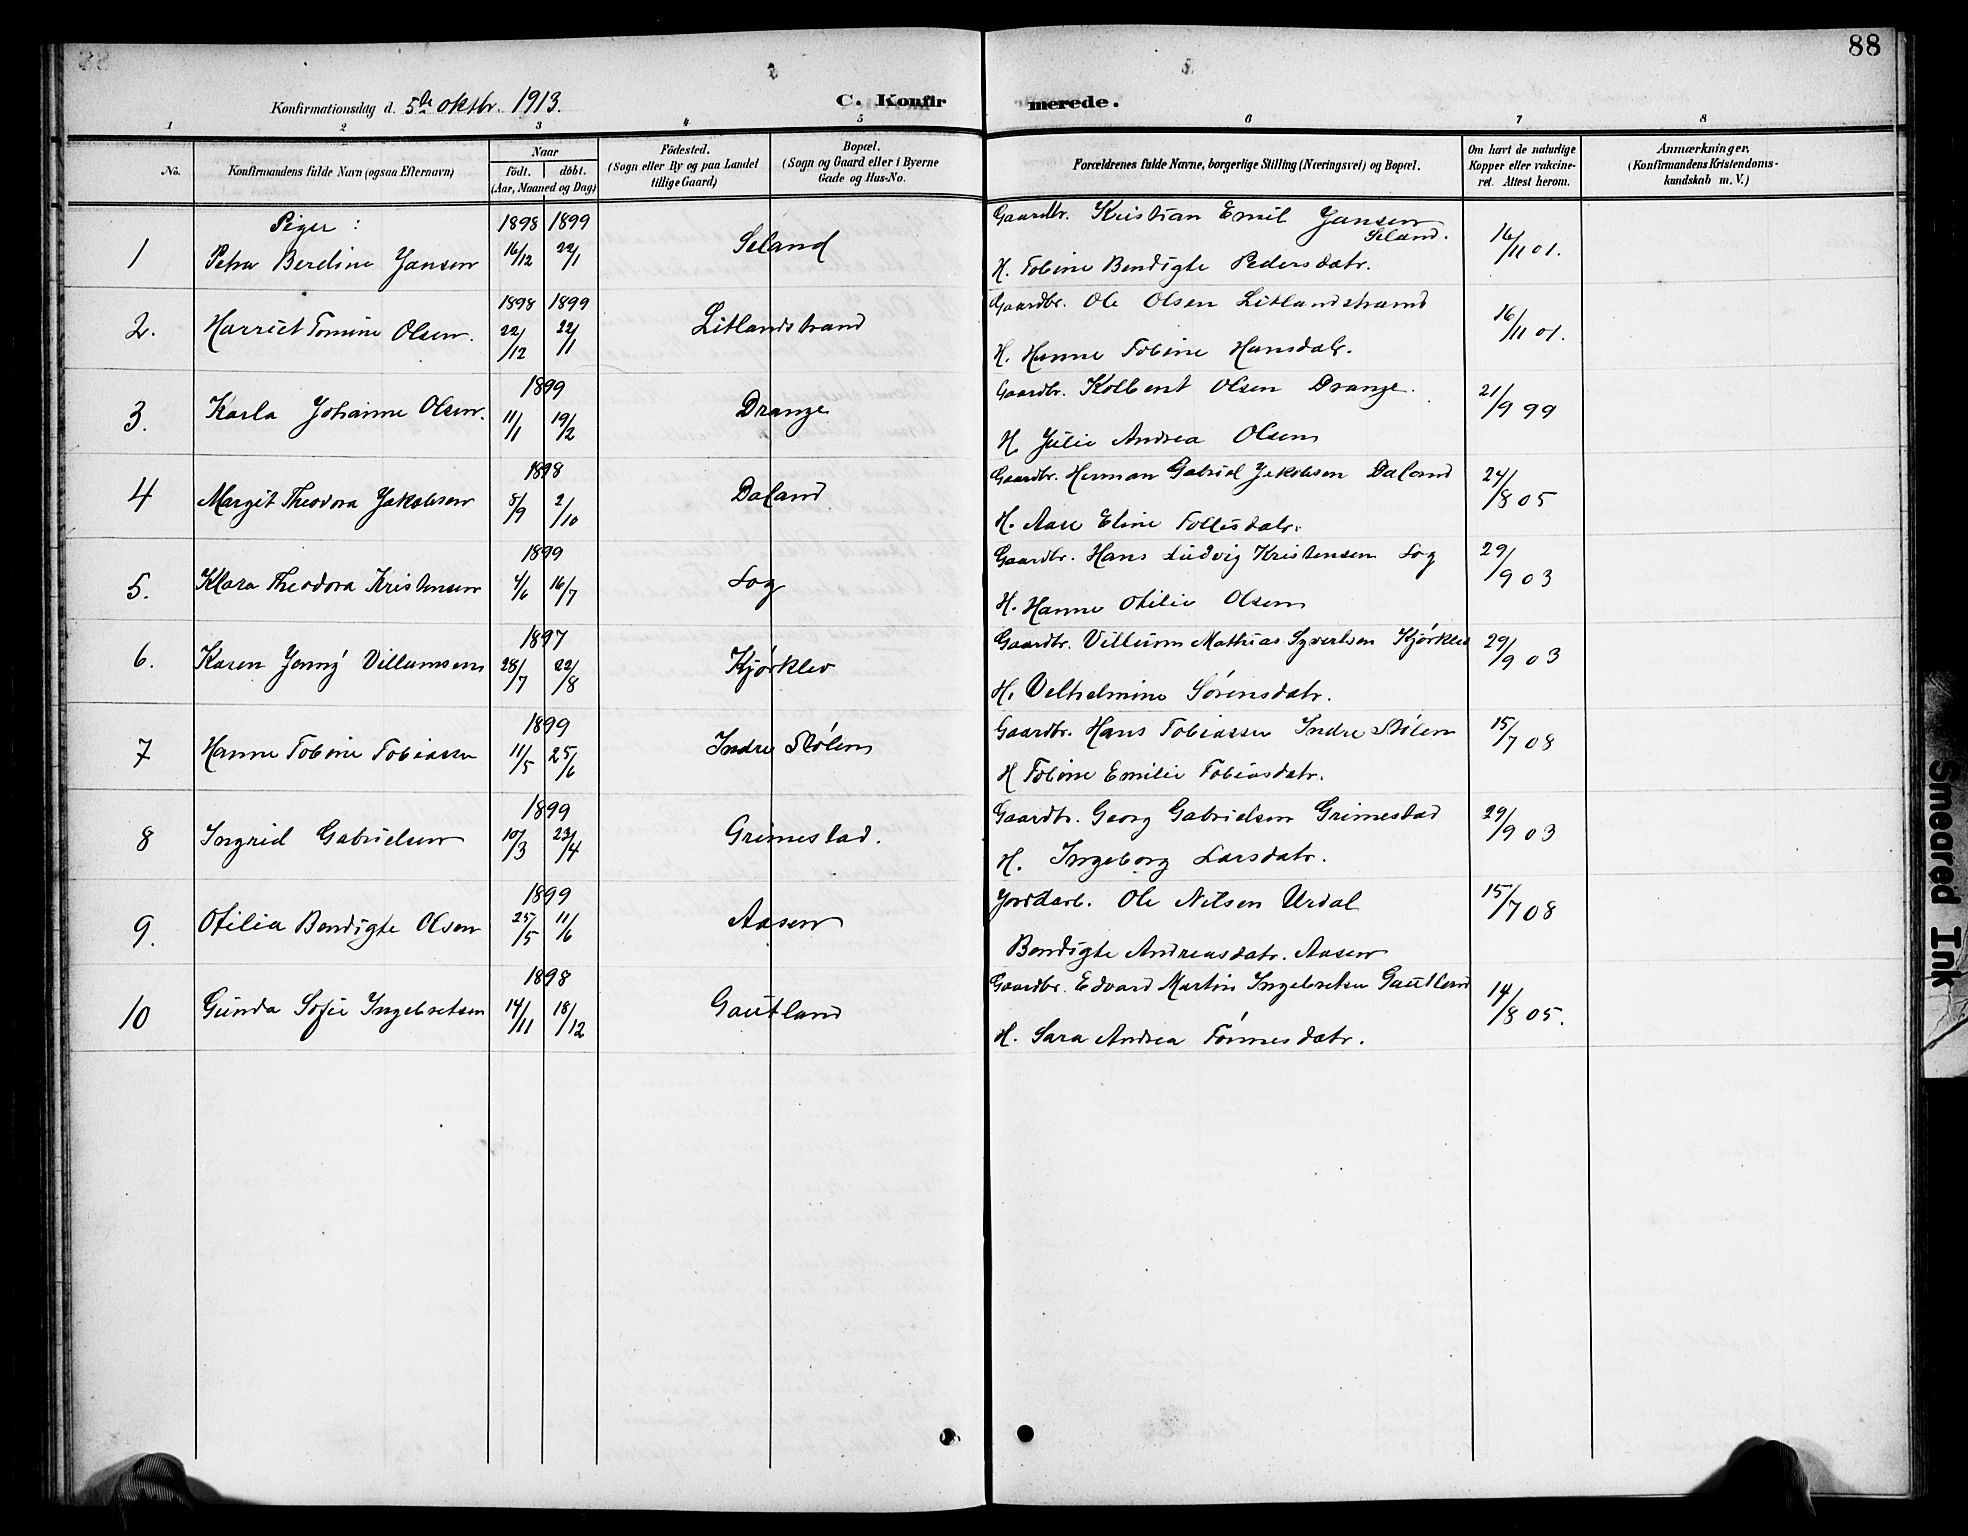 88
Konfirmationsdag d. 5te oktbr. 1913.
C. Konfirmerede.
1 2 3 4 5 6 7 8
No.
Konfirmandens fulde Navn (ogsaa Efternavn)
Naar
født. døbt.
(Aar, Maaned og Dag)
Fødested.
(Sogn eller By og paa Landet
tillige Gaard)
Bopæl.
(Sogn og Gaard eller i Byerne
Gade og Hus-No.
Forældrenes fulde Navne, borgerlige Stilling (Næringsvei) og Bopæl.
Om havt de naturlige
Kopper eller vakcine-
ret. Attest herom.
Anmærkninger,
(Konfirmandens Kristendoms-
kundskab m. V.)
Piger:
1 Petra Berdine Jansen 1898 16/12 1899 22/1 Seland
Gaardbr. Kristian Emil Jansen Seland.
H. Tobine Bendigte Pedersdatr.
16/11 01.
2. Harriet Tomine Olsen. 1898 22/12 1899 22/1 Litlandstrand
Gaardbr. Ole Olsen Litlandstrand
H. Hanne Tobine Hansdatr.
16/11 01.
3. Karla Johanne Olsen. 1899 11/1 19/2 Drange
Gaardbr. Kolbent Olsen Drange.
H. Julie Andrea Olsen
21/9 99
4 Margit Theodora Jakobsen 1898 8/9 2/10 Daland
Gaardbr. Herman Gabriel Jakobsen Daland
H. Aase Eline Tollisdatr.
24/8 05
5. Klara Theodora Kristensen 1899 4/6 16/7 Log
Gaardbr. Hans Ludvig Kristensen Log
H. Hanne Otilie Olsen
29/9 03
6. Karen Jenny Villumsen 1897 28/7 22/8 Kjørklev
Gaardbr. Villum Mathias Syvertsen Kjørklev
H. Velhelmine Sørensdatr.
29/9 03
7 Hanne Tobine Tobiassen 1899 11/5 25/6 Indre Stølen
Gaardbr. Hans Tobiassen Indre Stølen
H Tobine Emilie Tobiasdatr.
15/7 08
8 Ingrid Gabrielsen 1899 10/3 23/4 Grimestad.
Gaardbr. Georg Gabrielsen Grimestad
H. Ingeborg Larsdatr.
29/9 03
9. Otilia Bendigte Olsen 1899 25/5 11/6 Aasen
Jordarb. Ole Nilsen Urdal
Bendigte Andreasdatr. Aasen
15/7 08
10 Gunda Sofie Ingebretsen 1898 14/11 18/12 Gautland
Gaardbr. Edvard Martin Ingebretsen Gautland
H. Sara Andrea Tønnesdatr.
14/8 05.
Smeared Ink